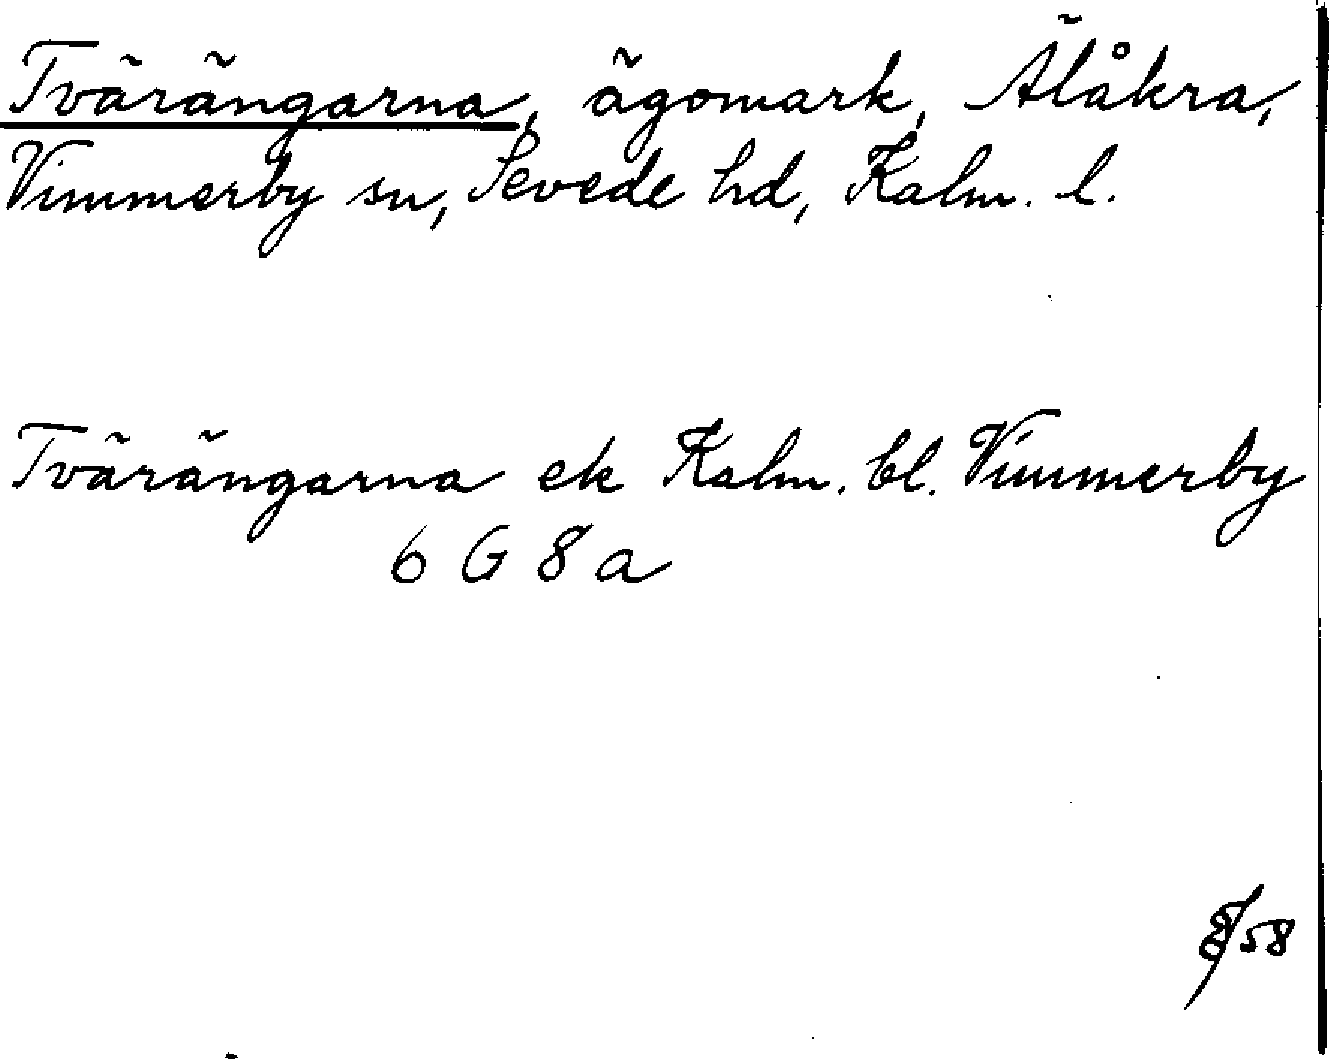 Tvärängarna, ägomark, Älåkra,
Vimmerby sn, Sevede hd, Kalm. l.
Tvärängarna ek Kalm. bl. Vimmerby
6 G 8 a
8/58